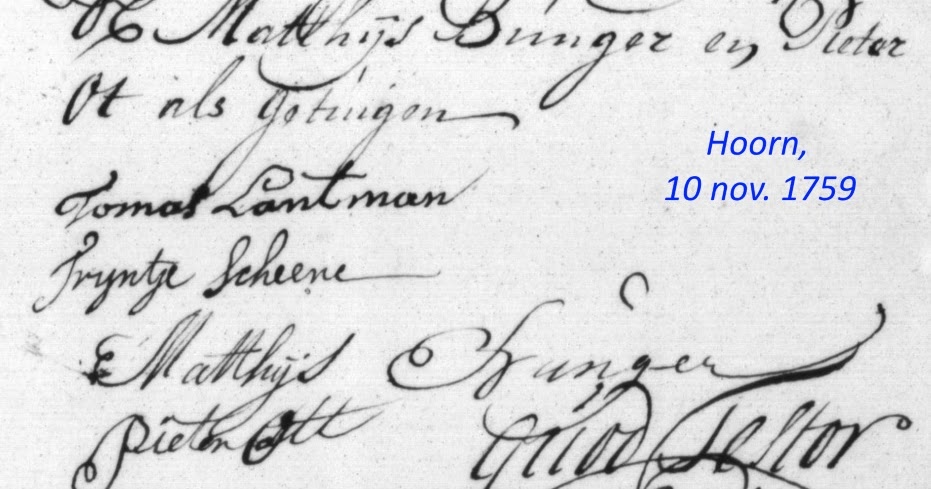 Matthijs Bunger en Pieter
Ot als getuigen
Hoorn,
10 nov. 1759
Tomas Lantman
Tryntje Scheene
Matthijs Bunger
Pieter Ott
Quod Testor